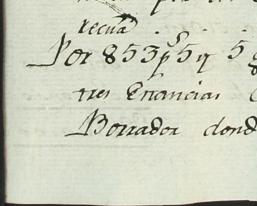 recua
Por 853 p^s 5 r 5
tres Enancias
Borrador dond